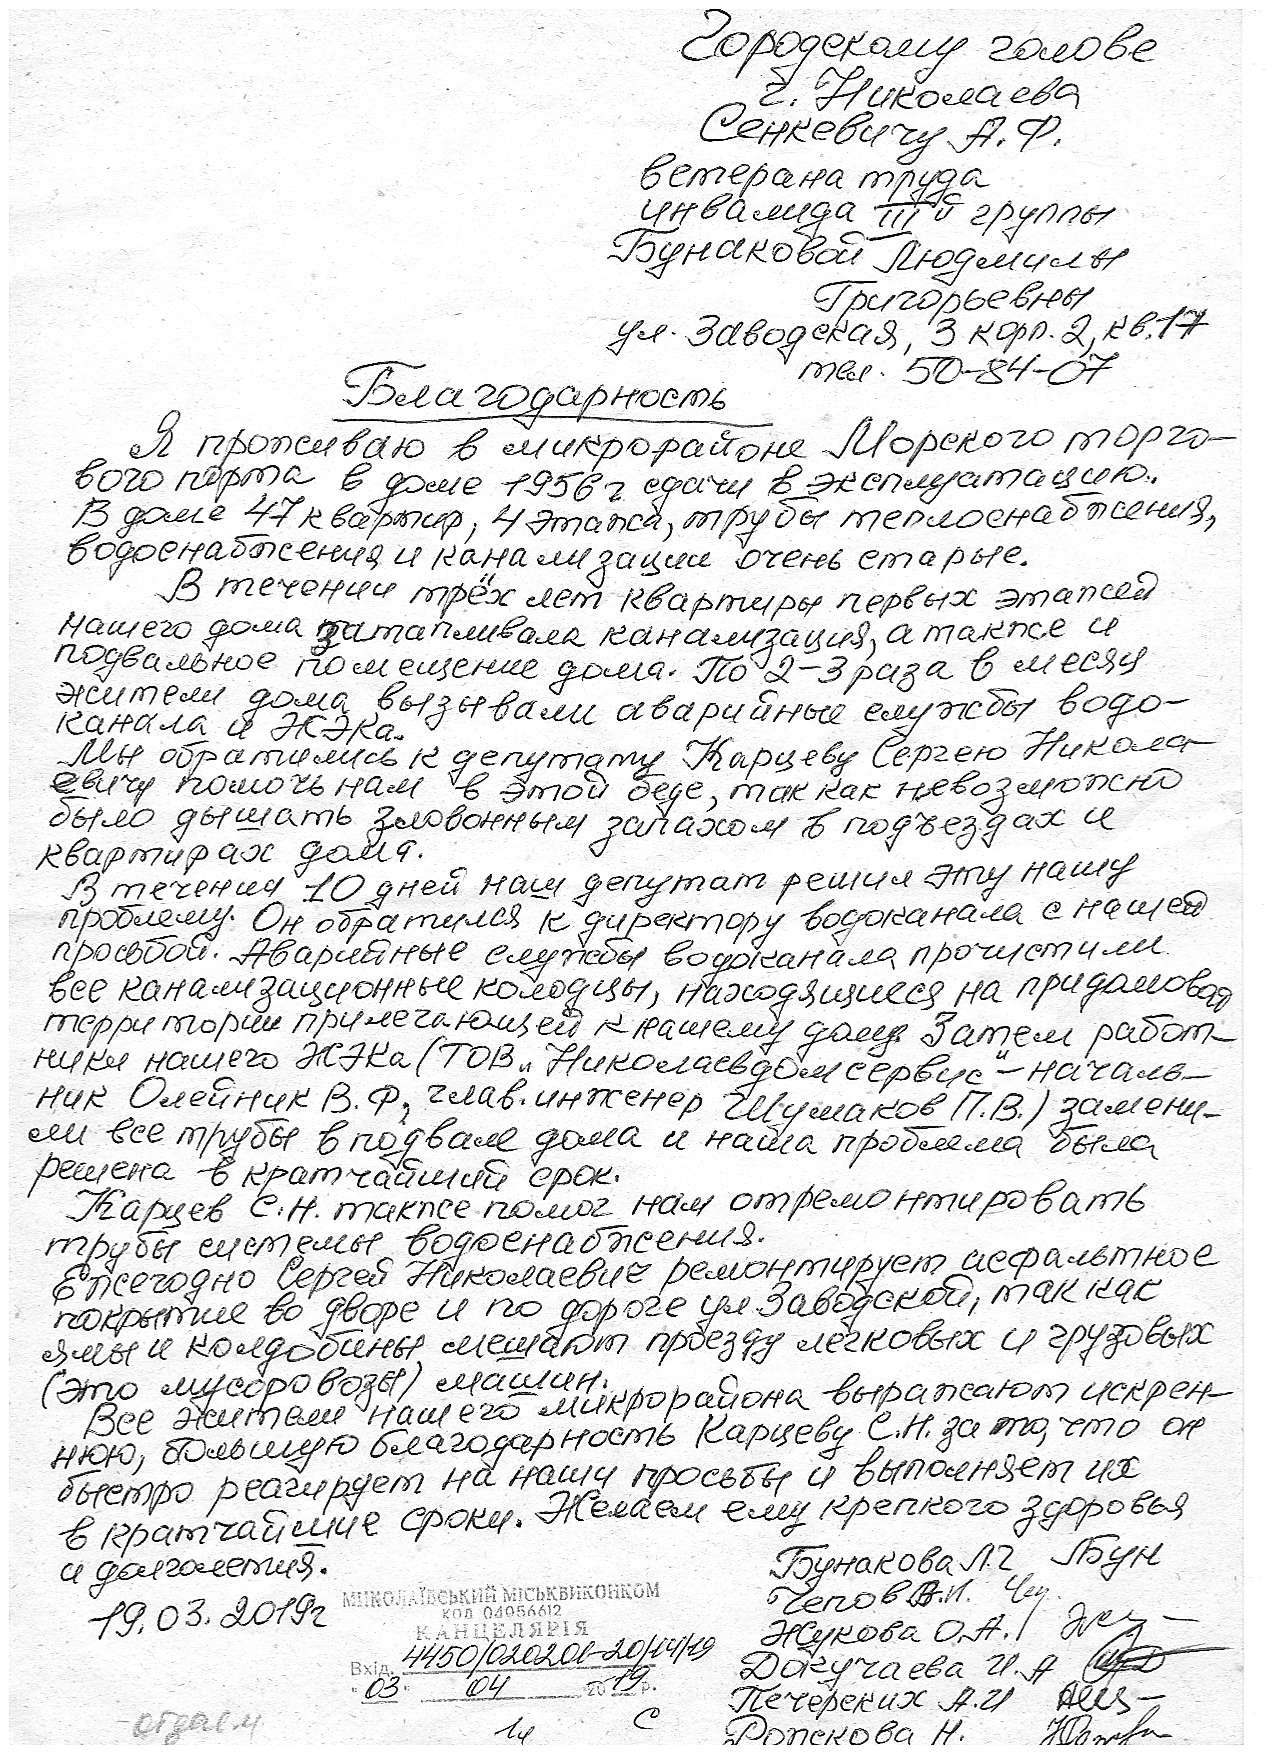 Городскому голове
г. Николаева
Сенкевичу А.Ф.
ветерана труда
инвалида III й группы
Бунаковой Людмилы
Григорьевны
ул. Заводская, 3 корп. 2, кв. 17
тел. 50-84-07
Благодарность
Я проживаю в микрорайоне Морского торго-
вого порта в доме 1956 г сдачи в эксплуатацию.
В доме 47 квартир, 4 этажа, трубы теплоснабжения,
водоснабжения и канализации очень старые.
В течении трёх лет квартиры первых этажей
нашего дома затапливала канализация, а также и
подвальное помещение дома. По 2-3 раза в месяц
жители дома вызывали аварийные службы водо-
канала и ЖЭКа.
Мы обратились к депутату Карцеву Сергею Никола-
евичу помочь нам в этой беде, так как невозможно
было дышать зловонным запахом в подъездах и
квартирах дома.
В течения 10 дней наш депутат решил эту нашу
проблему. Он обратился к директору водоканала с нашей
просьбой. Аварийные службы водоканала прочистили
все канализационные колодцы, находящиеся на придомовой
территории примечающей к нашему дому. Затем работ-
ники нашего ЖЭКа (ТОВ „Николаевдомсервис" - началь-
ник Олейник В.Ф, глав. инженер Шумаков П.В.) замени-
ли все трубы в подвале дома и наша проблема была
решена в кратчайший срок.
Карцев С.Н. также помог нам отремонтировать
трубы системы водоснабжения.
Ежегодно Сергей Николаевич ремонтирует асфальтное
покрытие во дворе и по дороге ул Заводской, так как
ямы и колдобины мешают проезду легковых и грузовых
(это мусоровозы) машин.
Все жители нашего микрорайона выражают искрен-
нюю, большую благодарность Карцеву С.Н. за то, что он
быстро реагирует на наши просьбы и выполняет их
в кратчайшие сроки. Желаем ему крепкого здоровья
и долголетия.
19.03.2019г
Бунакова Л.Г Бун
Чепов А.И.
Жукова О.А.
Докучаева И.А
Печерских А.И
Рожкова Н.
МИКОЛАЇВСЬКИЙ МІСЬКВИКОНКОМ
КОД 04056612
КАНЦЕЛЯРІЯ
Вхід. 4450/020201-20/14/19
"03" 04 2019 р.